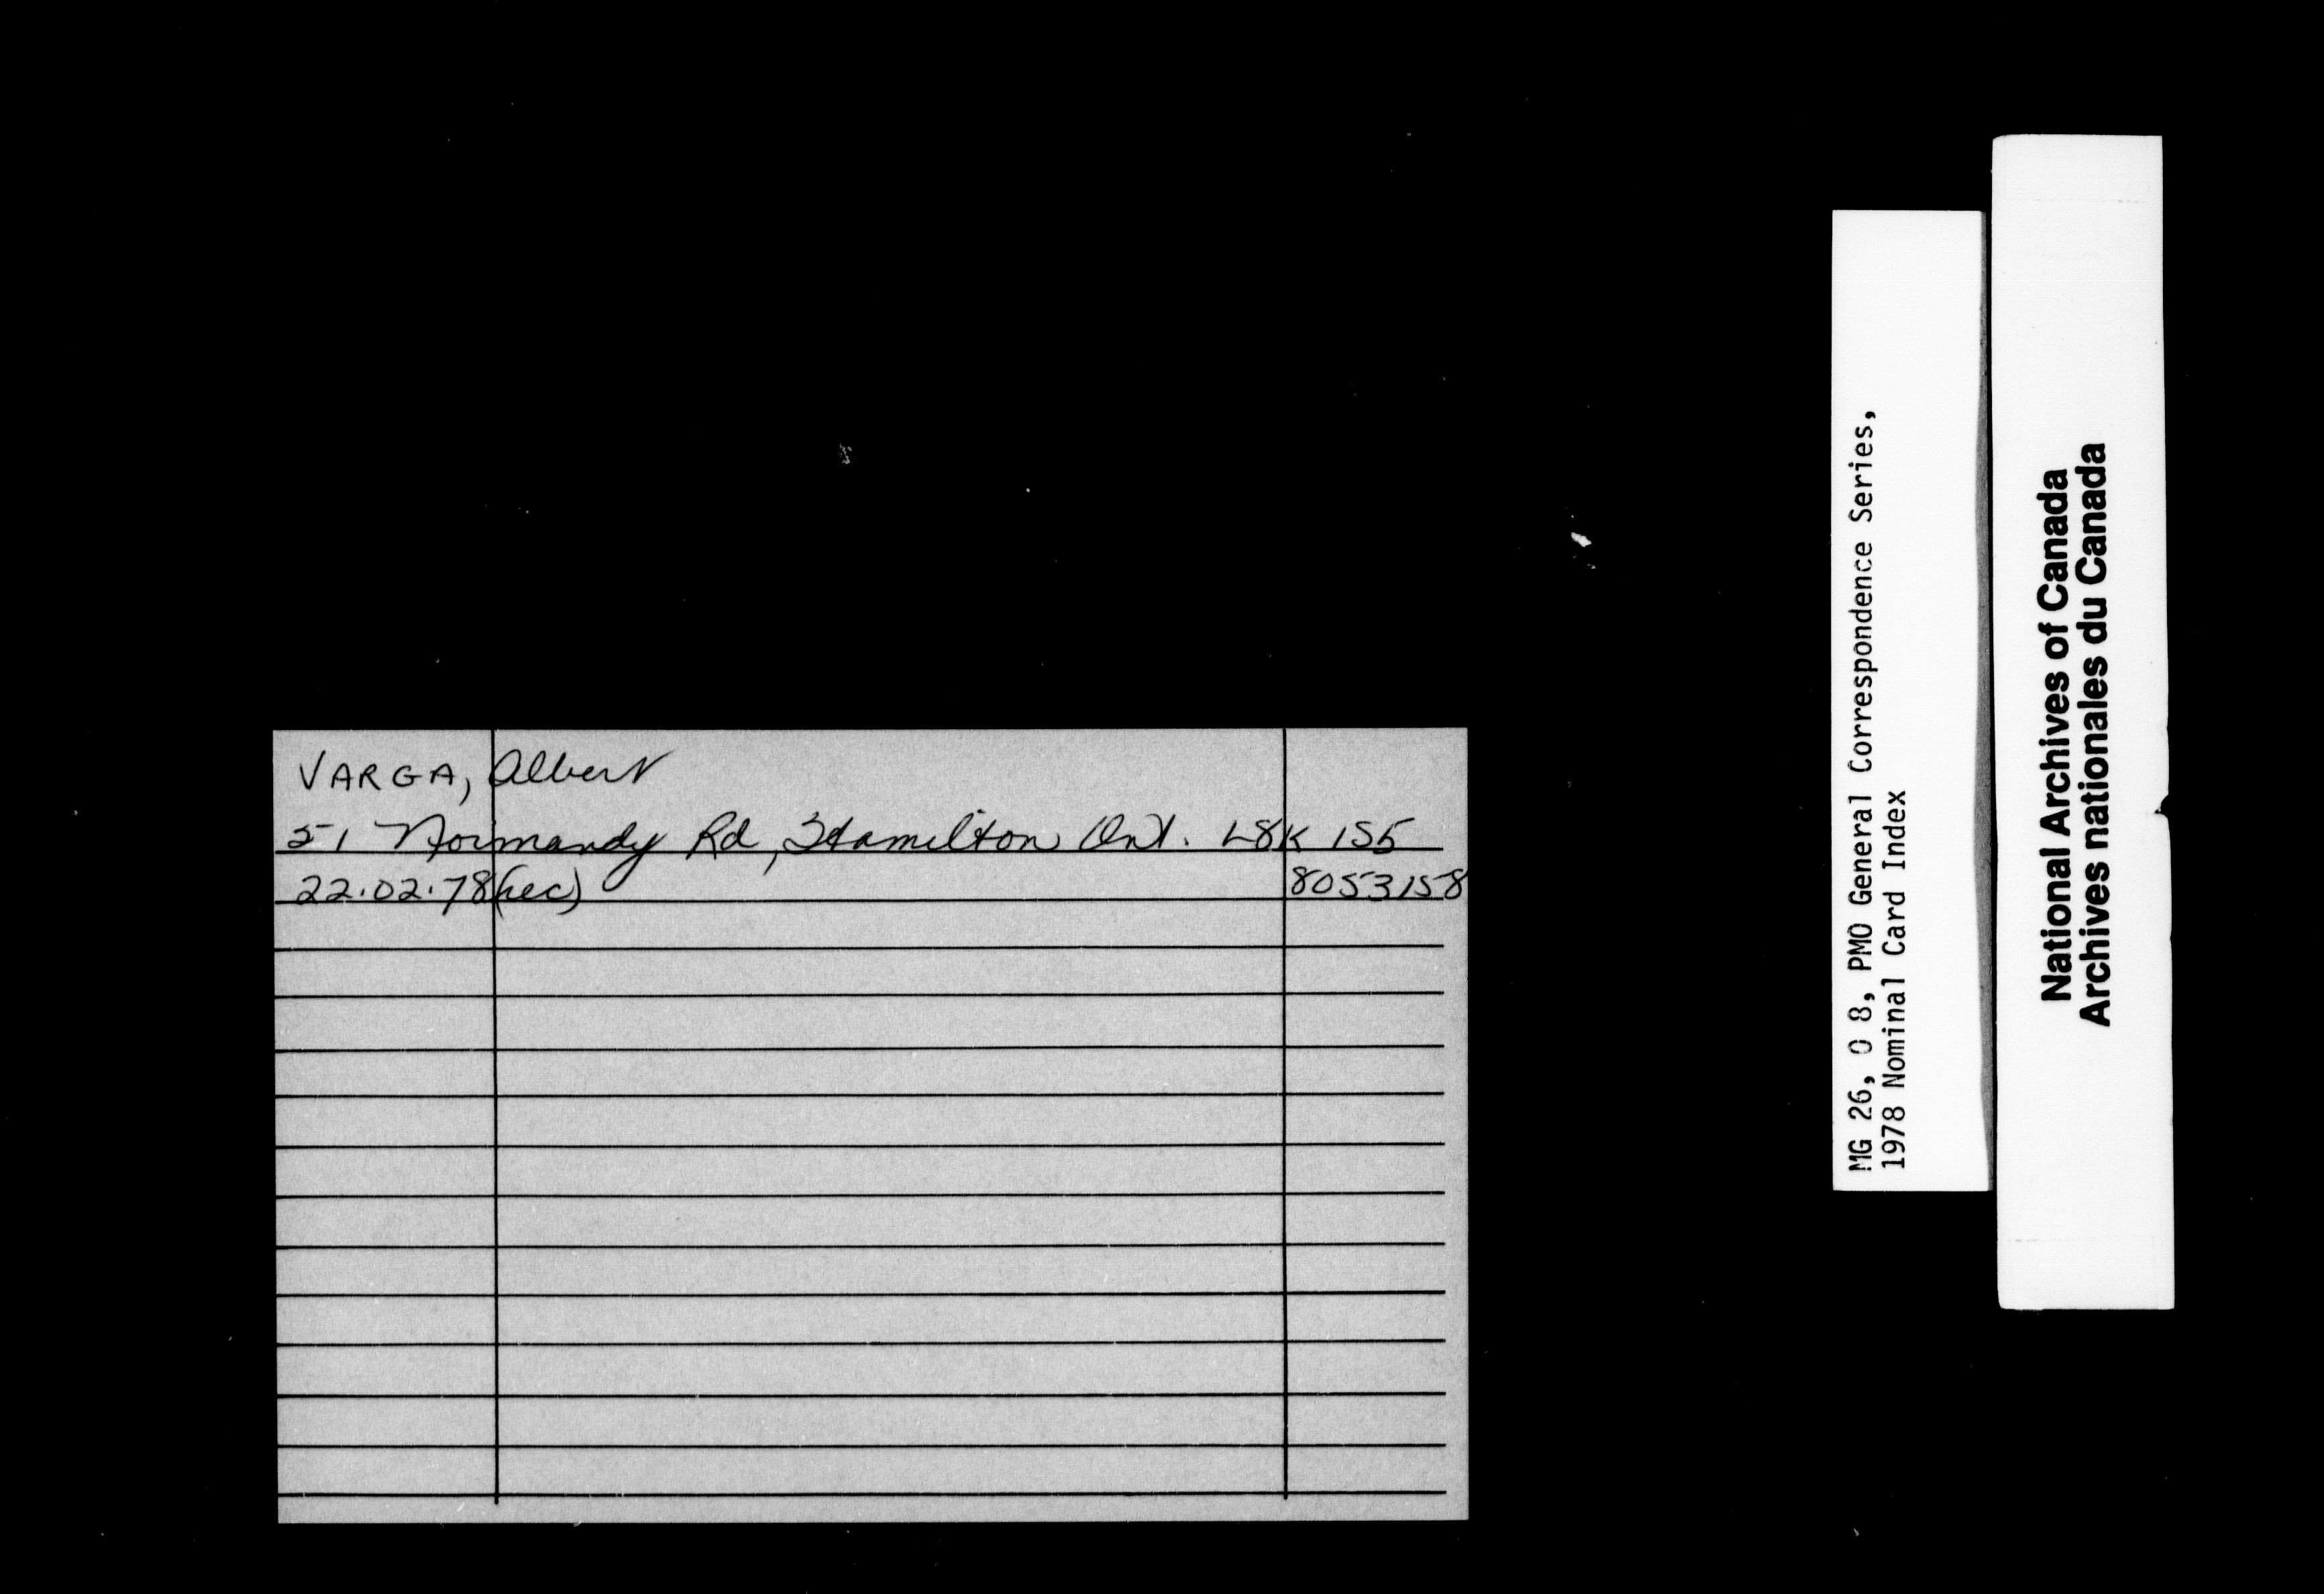 VARGA, Albert
51 Normandy Rd, Hamilton Ont. L8K 1S5
22.02.78 (rec) 8053158
MG 26, O 8, PMO General Correspondence Series,
1978 Nominal Card Index
National Archives of Canada
Archives nationales du Canada